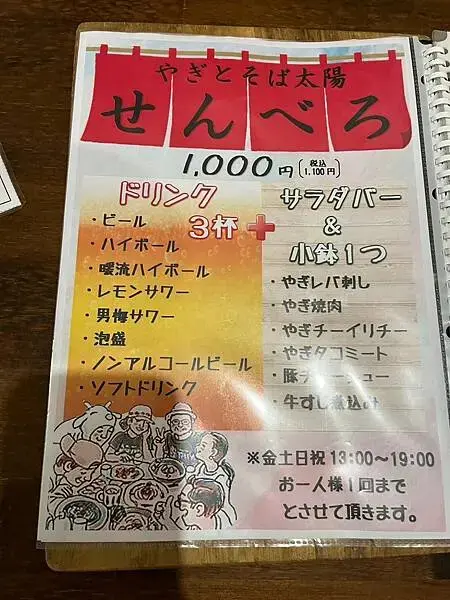 やぎとそば太陽
せんべろ
1,000円(税込 1,100円)
ドリンク
3杯
+
・ビール
・ハイボール
・暖流ハイボール
・レモンサワー
・男梅サワー
・泡盛
・ノンアルコールビール
・ソフトドリンク
サラダバー
&
小鉢1つ
・やぎレバ刺し
・やぎ焼肉
・やぎチーイリチー
・やぎタコミート
・牛すじ煮込み
※金土日祝 13:00〜19:00
お一人様1回まで
とさせて頂きます。